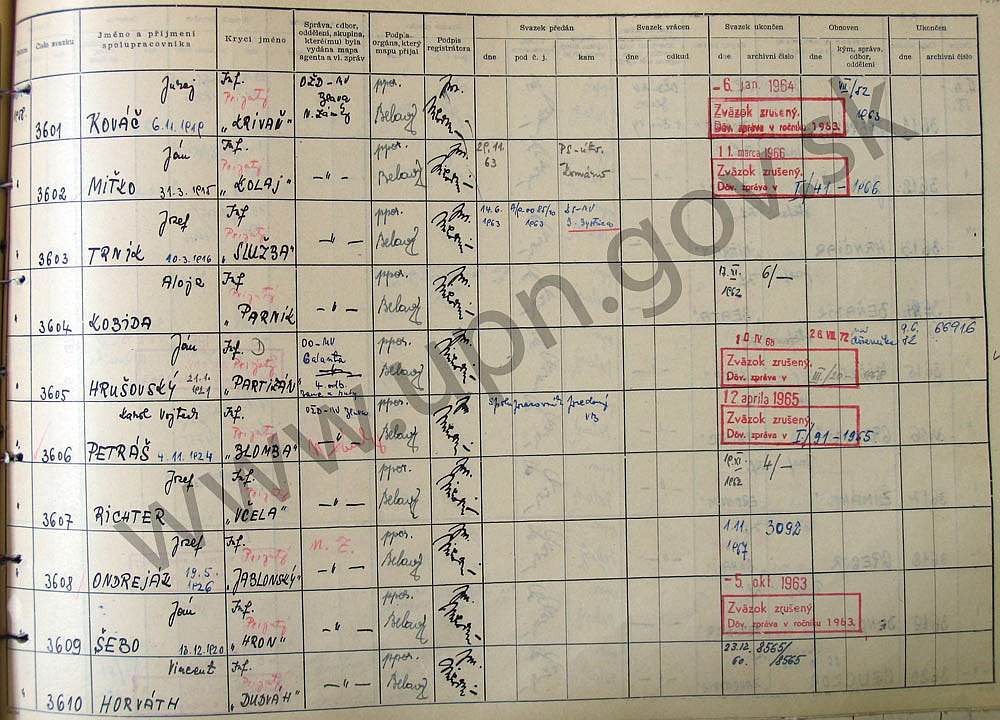 Číslo svazku
Jméno a příjmení spolupracovníka
Krycí jméno
Správa, odbor, oddělení, skupina, které(mu) byla vydána mapa agenta a vl. zpráv
Podpis orgána, který mapu přijal
Podpis registrátora
Svazek předán
dne
pod č. j.
kam
Svazek vrácen
dne
odkud
Svazek ukončen
dne
archivní číslo
Obnoven
dne
kým, správa, odbor, oddělení
Ukončen
dne
archivní číslo
3601
Juraj
KOVÁČ 6.11.1919
Inf.
Prijatý
"KRIVAŇ"
OŽD-MV
N. Zámky
ppor.
Belavý
-6. jan. 1964
Zväzok zrušený.
Dôv. zpráva v ročníku 1963.
VII/52
1963
3602
Ján
MIŤKO 31.3.1915
Inf.
Prijatý
"KOLAJ"
- " -
ppor.
Belavý
29.11.
63
Komárno
11. marca 1966
Zväzok zrušený.
Dôv. zpráva v I/41 - 1966
3603
Jozef
TRNIK 10.3.1916
Inf
Prijatý
"SLUŽBA"
- " -
ppor.
Belavý
14.6.
1963
1963
KS-MV
B. Bystrica
3604
Alojz
KOBIDA
Inf
Prijatý
"PARNÍK
- " -
ppor.
Belavý
17.XI.
1962
6/-
3605
Ján
HRUŠOVSKÝ 21.1.
1921
Inf. D
Prijatý
"PARTIZÁN"
OO-MV
Galanta
4. odb.
ppor.
Belavý
10 IV. 68
Zväzok zrušený.
Dôv. zpráva v III/20-1968
26. VII. 72
9.6.
82
66916
3606
Karol Vojtech
PETRÁŠ 4.11.1924
Inf.
Prijatý
"BLOMBA"
OŽD-MV
- " -
ppor.
Belavý
Spolupracovník predaný
VB
12. apríla 1965
Zväzok zrušený.
Dôv. zpráva v I/91-1965
3607
Jozef
RICHTER
Inf.
Prijatý
"VČELA"
- " -
ppor.
Belavý
19.XI.
1962
4/-
3608
Jozef
ONDREJAK 19.5.
1926
Inf.
Prijatý
"JABLONSKÝ"
N. Z.
- " -
ppor.
Belavý
1.11.
1967
3092
3609
Ján
ŠEBO 10.12.1920
Inf.
Prijatý
"HRON"
- " -
ppor.
Belavý
-5. okt. 1963
Zväzok zrušený.
Dôv. zpráva v ročníku 1963.
3610
Vincent
HORVÁTH
Inf.
Prijatý
"DUDVÁH"
- " -
ppor.
Belavý
23.12.
60.
8565/
/8565
www.upn.gov.sk